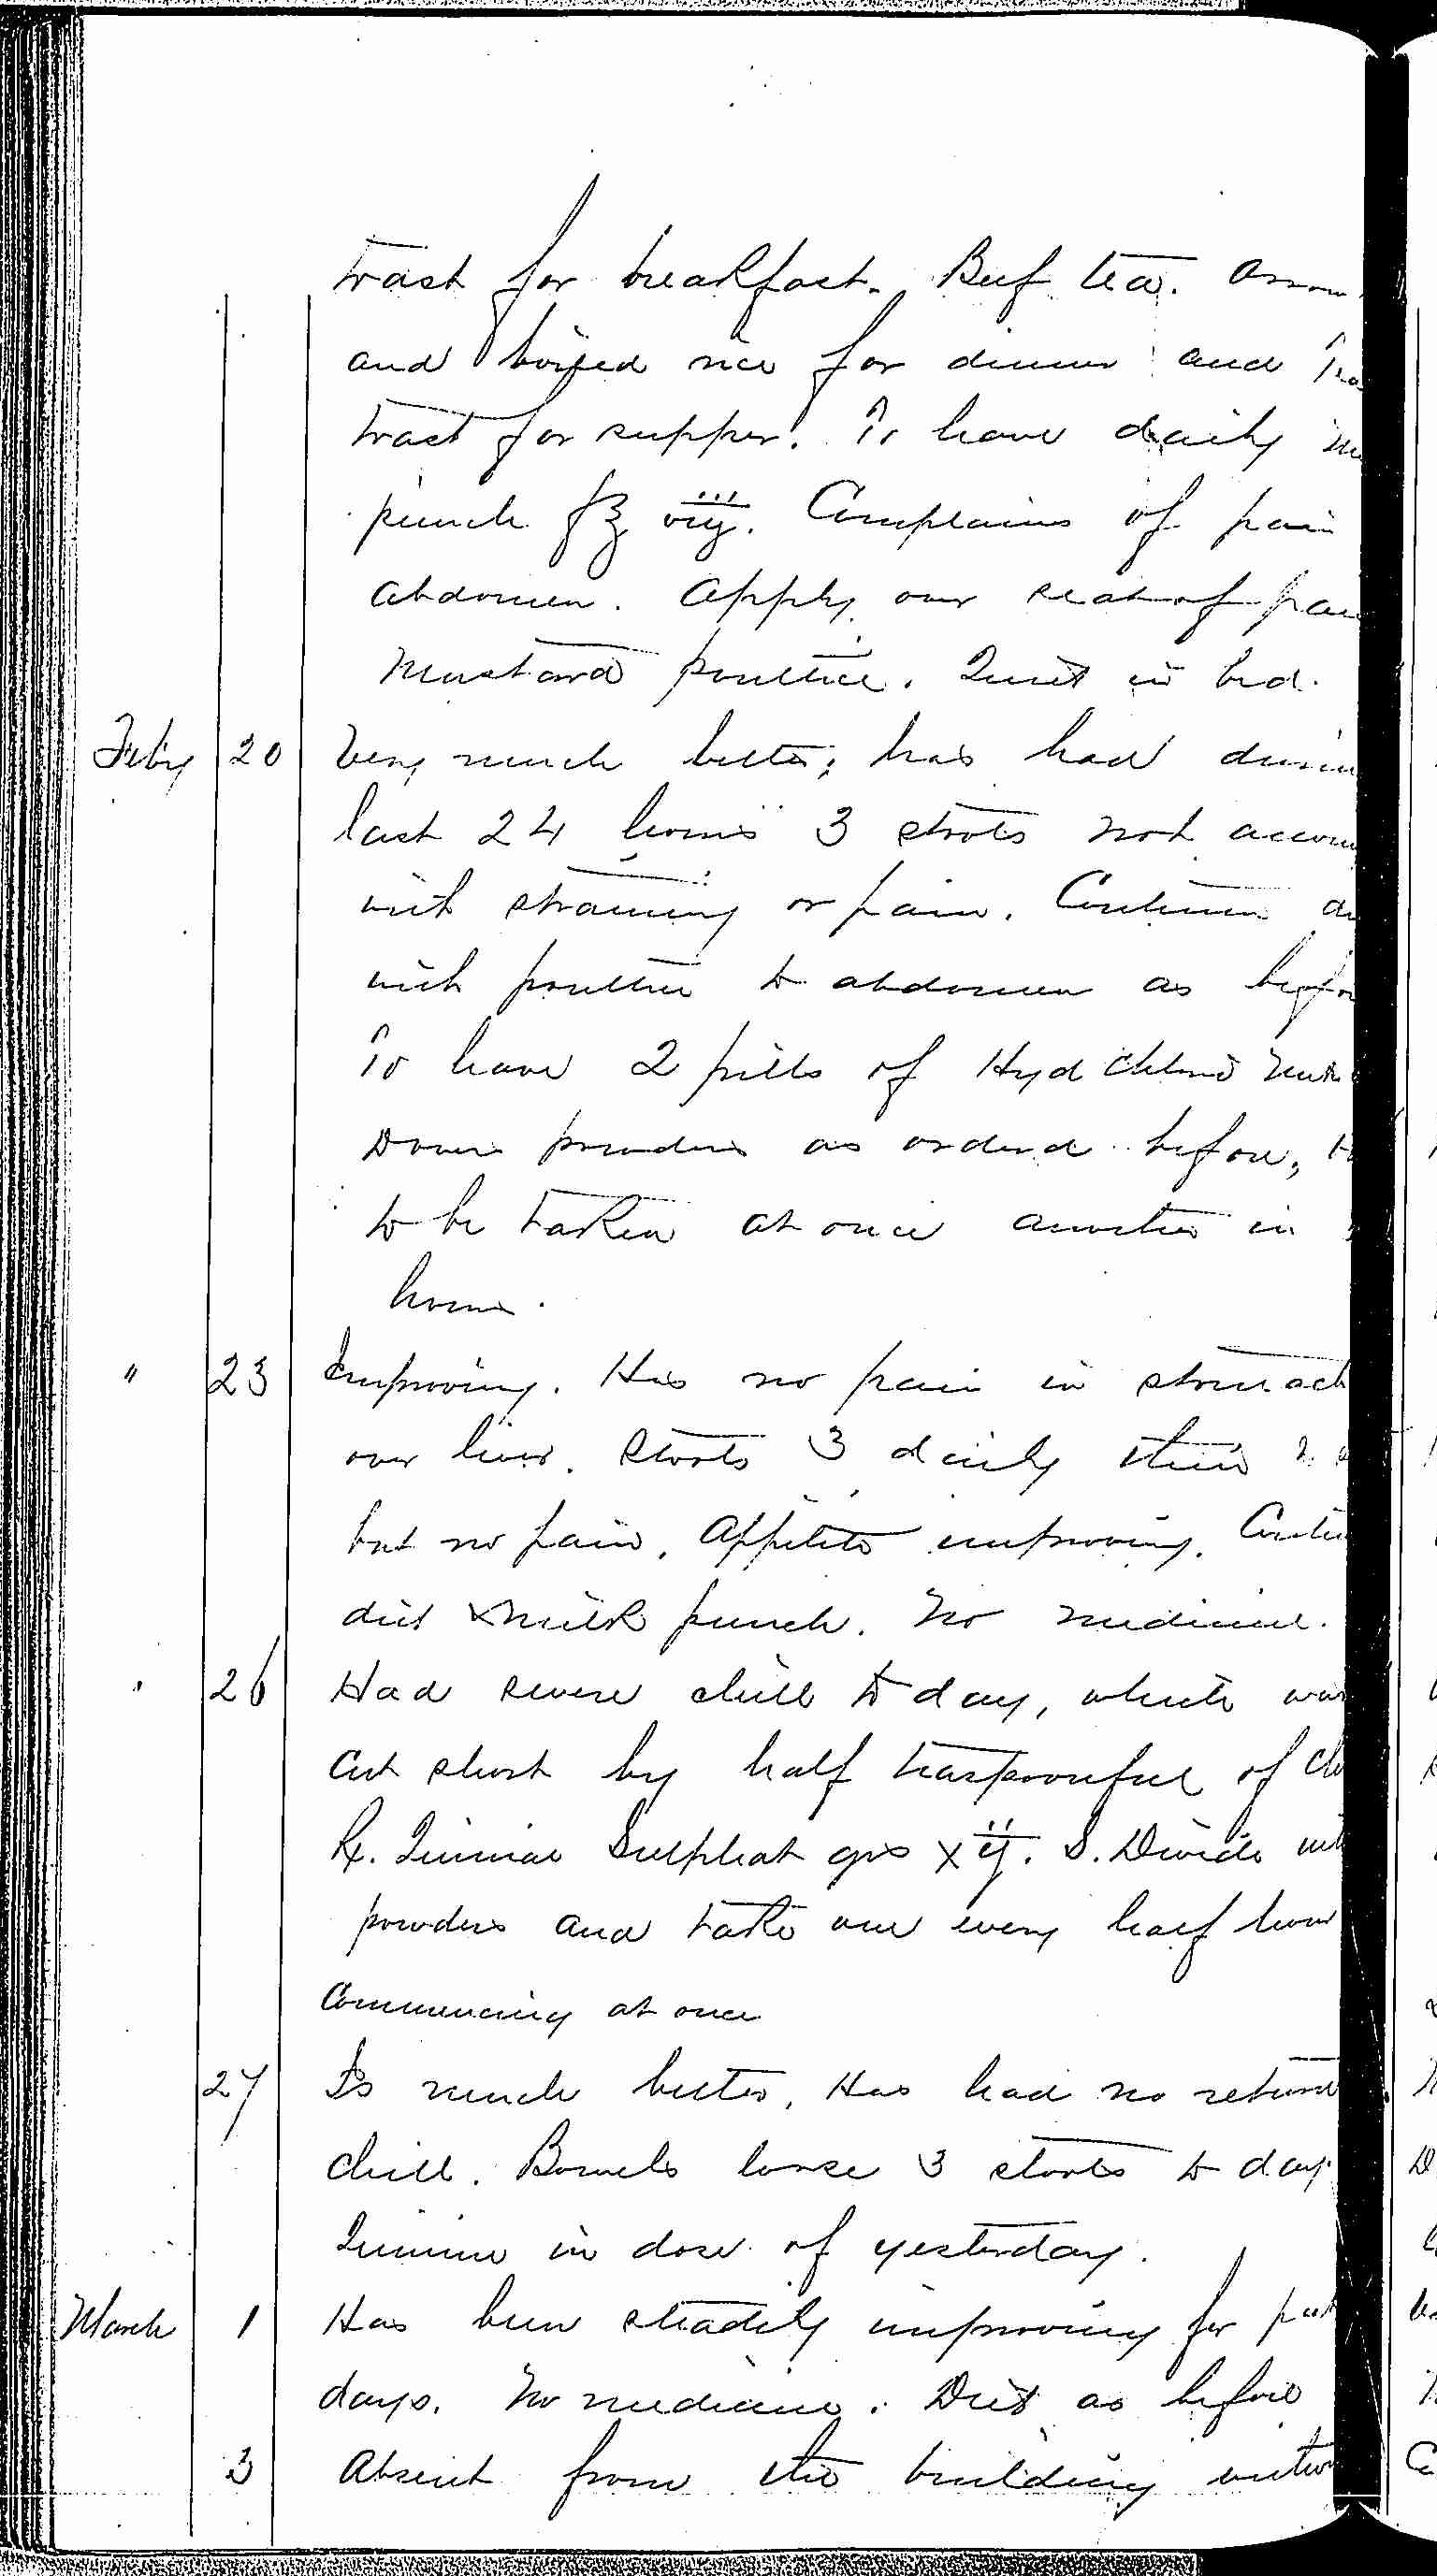 toast for breakfast. Beef tea.
and boiled rice for dinner and
toast for supper. To have daily
punch f℥ viij. Complains of pain
abdomen. Apply over seat of pain
Mustard poultice. Quiet in bed.
Feby 20 Very much better; has had
last 24 hours 3 stools not
with straining or pain. Continue
with poultice to abdomen as
To have 2 pills of Hyd Chlorid
Dovers powders as ordered before,
to be taken at once another in
hours.
" 23 Improving. Has no pain in stomach
over liver. Stools 3 daily thin
but no pain. Appetite improving.
diet & milk punch. No medicine.
" 26 Had severe chill to day, which was
cut short by half teaspoonful of
Rx. Quiniae Sulphat grs xij. S. Divide
powders and take one every half hour
Commencing at once
27 Is much better. Has had no return
chill. Bowels loose 3 stools to day
Quinine in dose of yesterday.
March 1 Has been steadily improving for
days. No medicine. Diet as before
3 Absent from the building